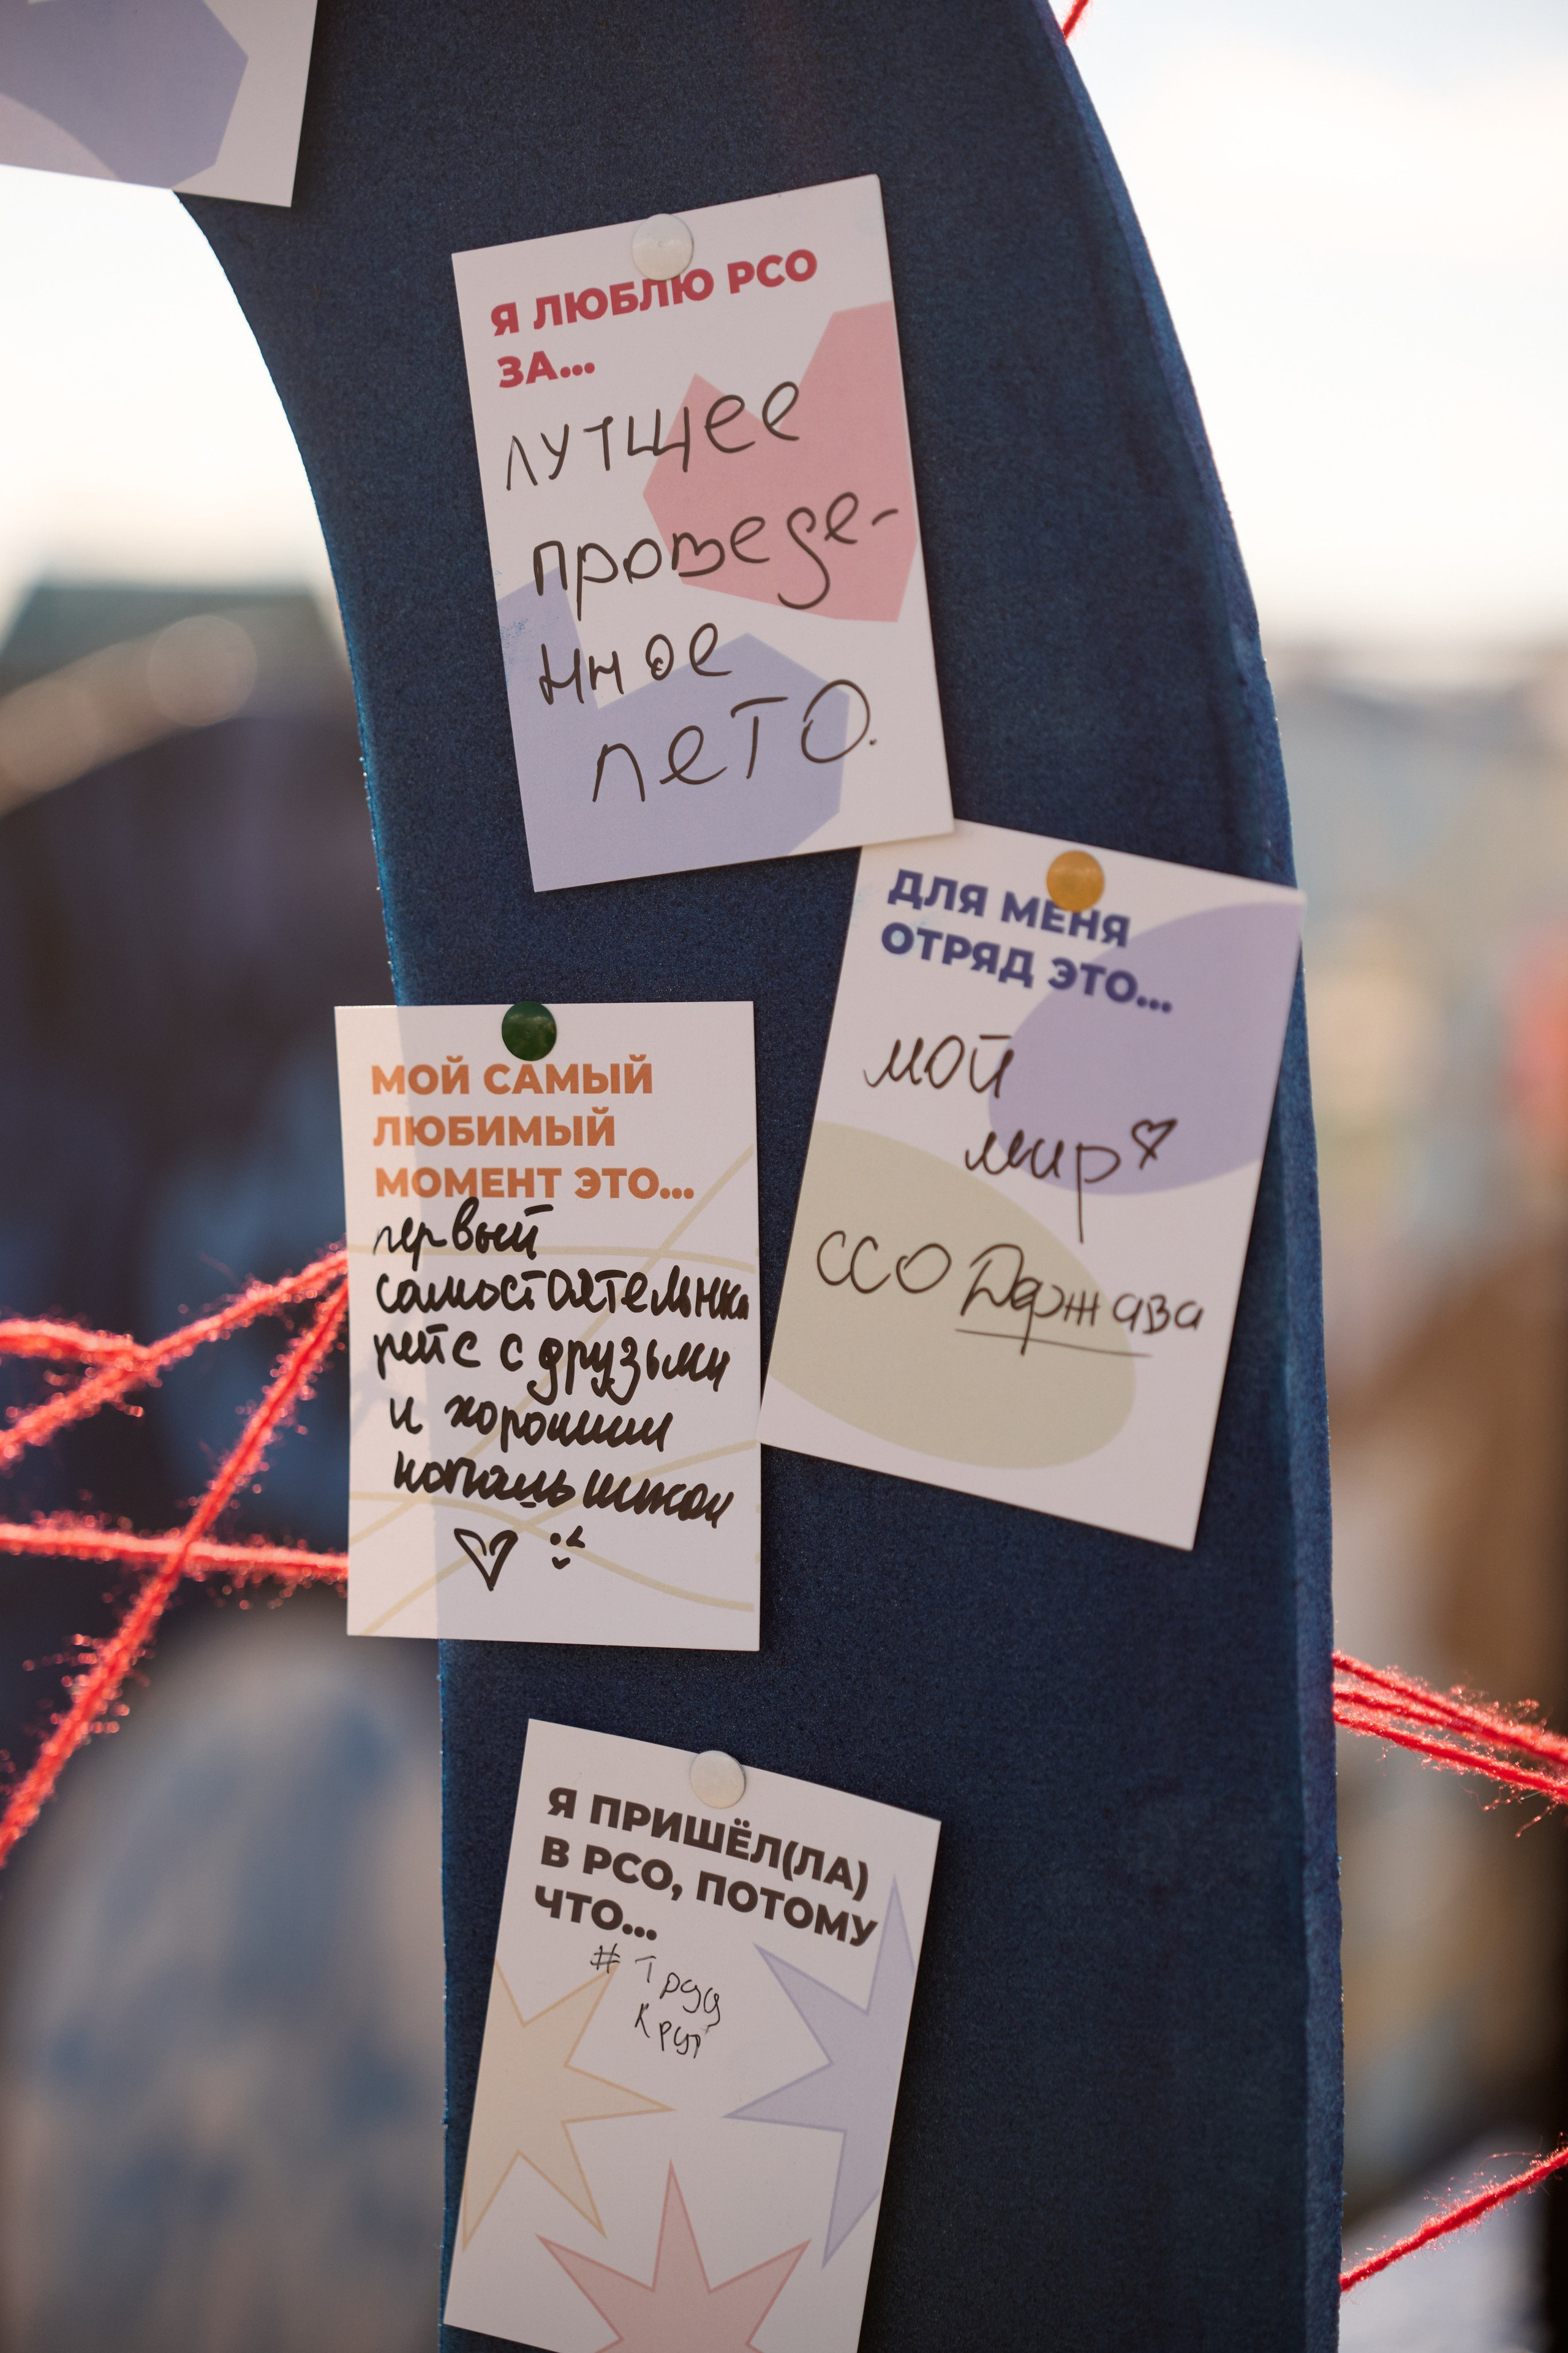 Я ЛЮБЛЮ РСО
ЗА...
лутщее
проведе-
нное
лето.
ДЛЯ МЕНЯ
ОТРЯД ЭТО...
мой
мир
ССО Держава
МОЙ САМЫЙ
ЛЮБИМЫЙ
МОМЕНТ ЭТО...
первый
самостоятельный
рейс с друзьми
и хорошим
Я ПРИШЁЛ(ЛА)
В РСО, ПОТОМУ
ЧТО...
# Труд
крут